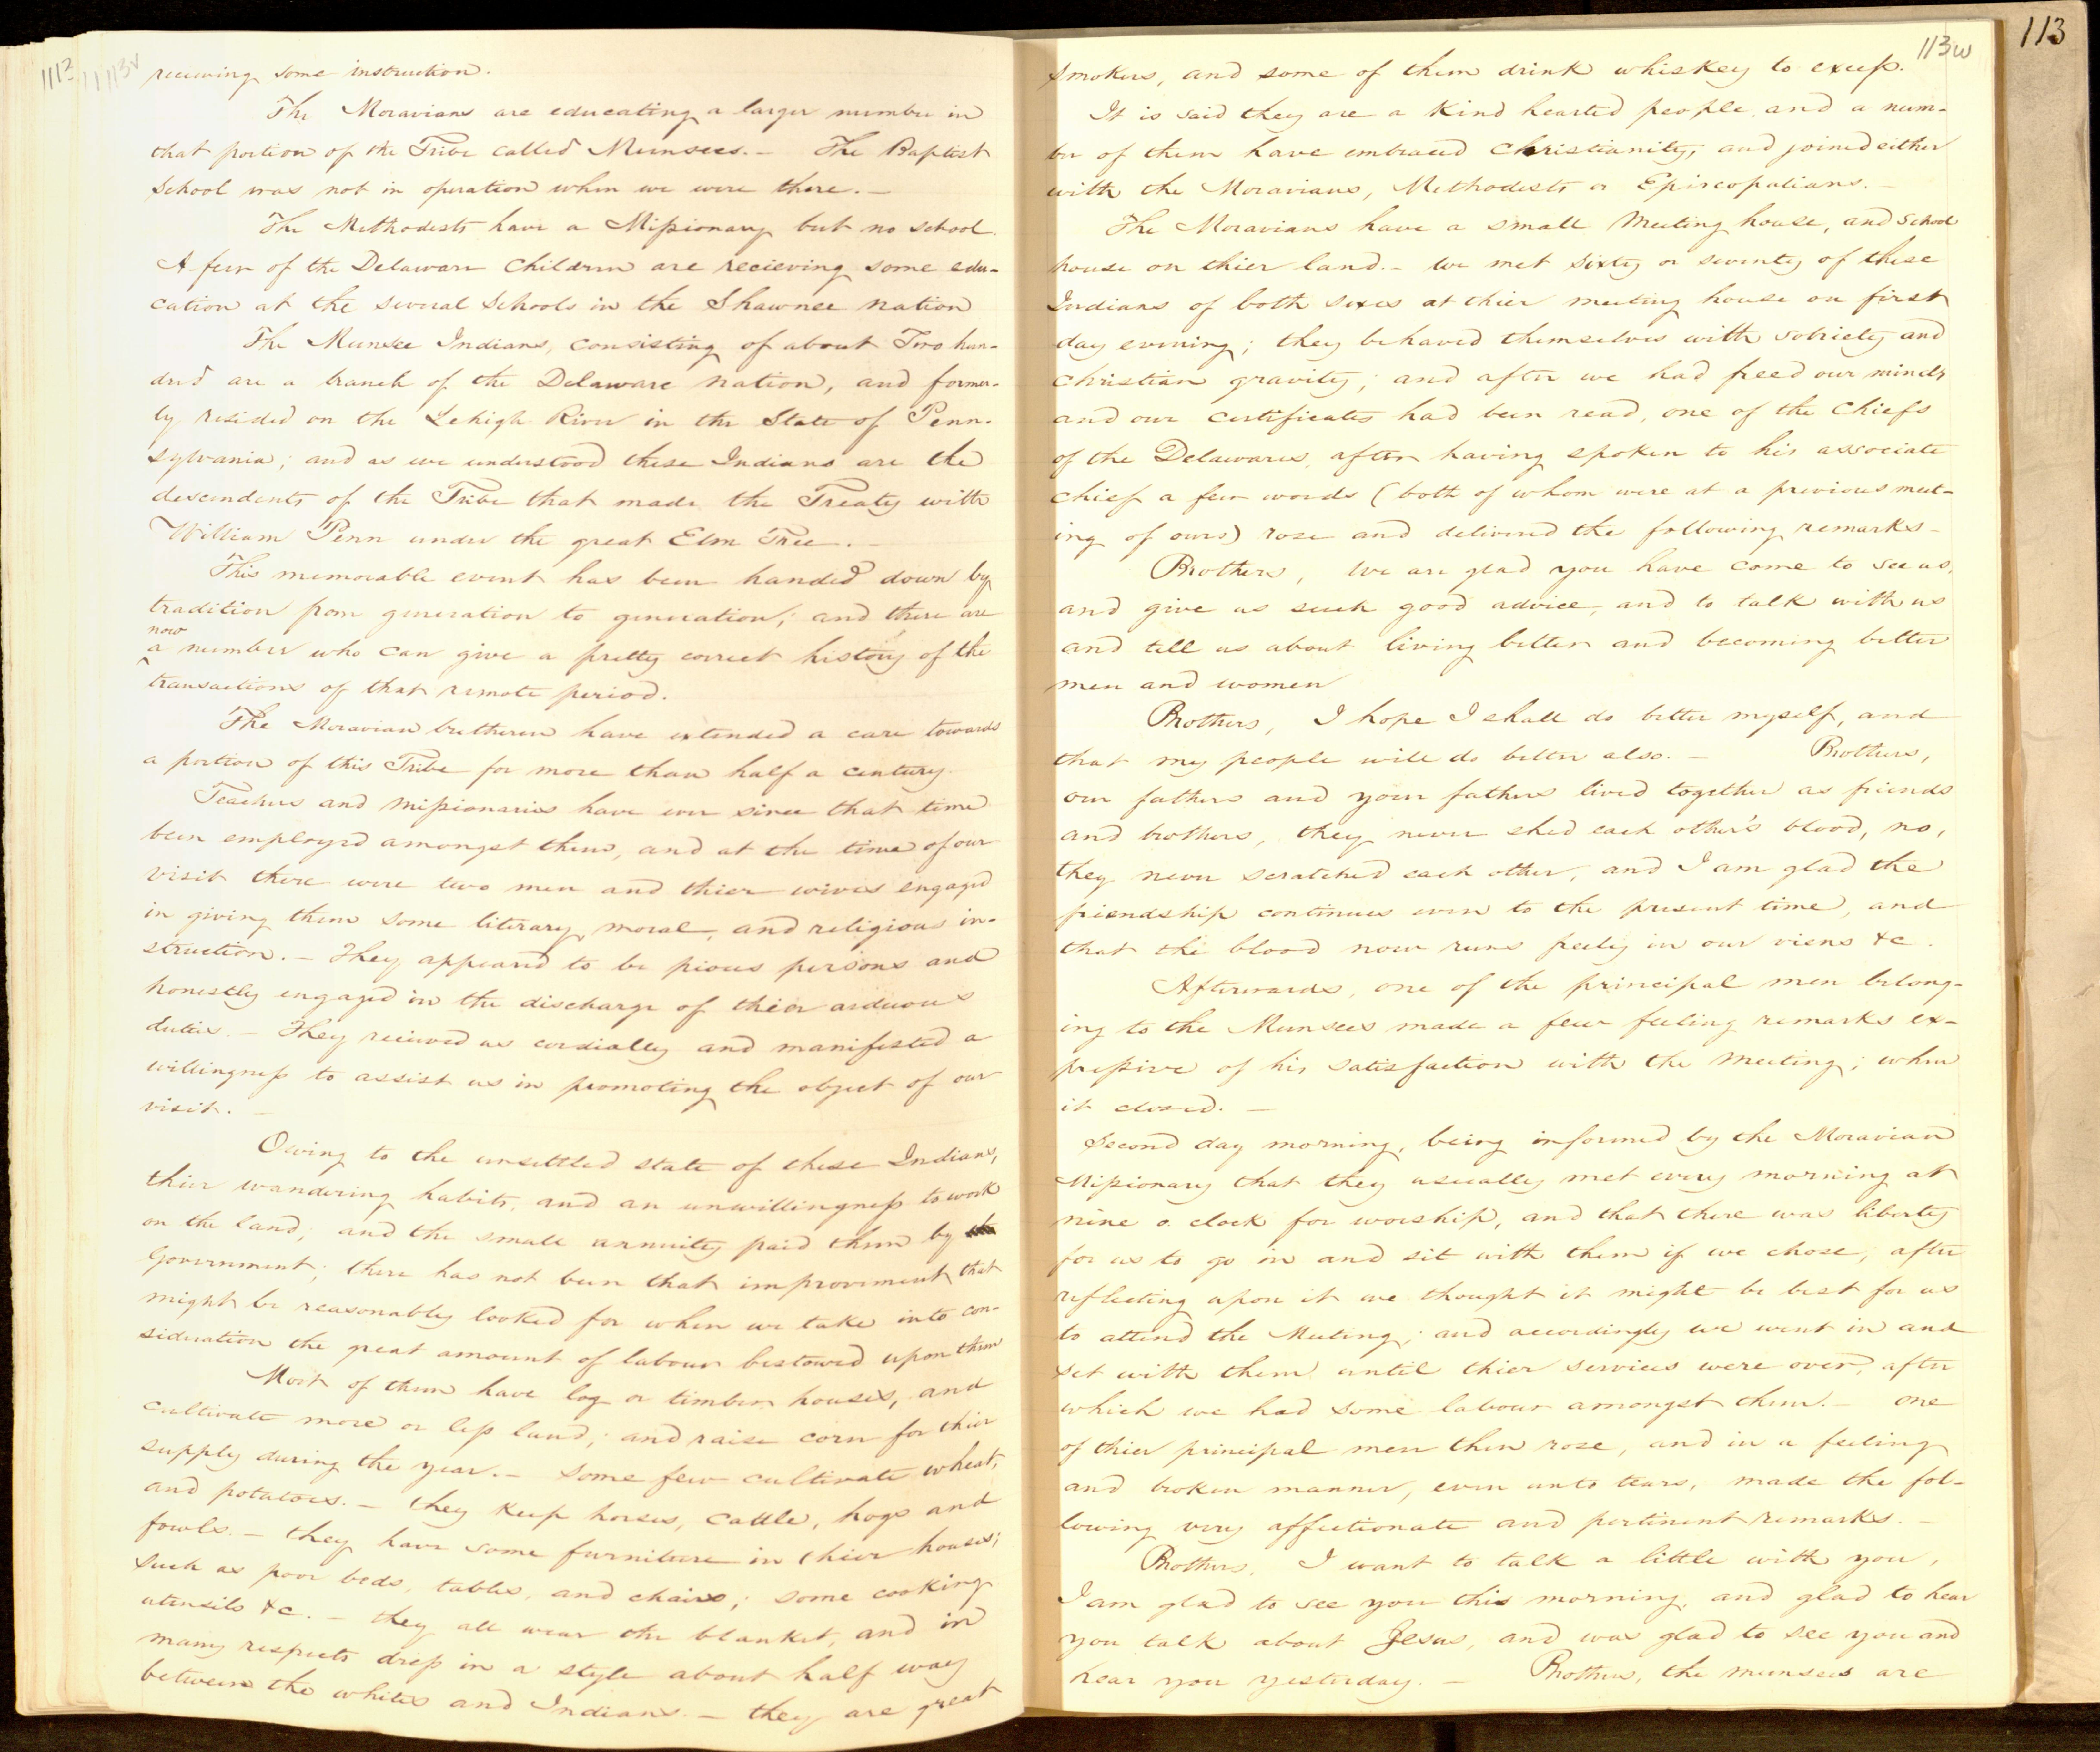 113v
receiving some instruction.
The Moravians are educating a larger number in
that portion of the Tribe called Munsees. — The Baptist
School was not in operation when we were there. —
The Methodests have a Missionary but no school.
A few of the Delaware Children are recieving some edu-
cation at the several Schools in the Shawnee nation
The Munsee Indians, consisting of about Two hun-
dred are a branch of the Delaware nation, and former-
ly resided on the Lehigh River in the State of Penn-
sylvania; and as we understood these Indians are the
descendents of the Tribe that made the Treaty with
William Penn under the great Elm Tree. —
This memorable event has been handed down by
tradition from generation to generation; and there are
now
a number who can give a pretty correct history of the
transactions of that remote period.
The Moravian bretheren have extended a care towards
a portion of this Tribe for more than half a century.
Teachers and missionaries have ever since that time
been employed amongst them, and at the time of our
visit there were two men and thier wives engaged
in giving them some literary, moral, and religious in-
struction. — They appeared to be pious persons and
honestly engaged in the discharge of thier arduous
duties. — They recieved us cordially and manifested a
willingness to assist us in promoting the object of our
visit. —
Owing to the unsettled state of these Indians,
thier wandering habits, and an unwillingness to work
on the land; and the small annuity paid them by
Government; there has not been that improvement that
might be reasonably looked for when we take into con-
sideration the great amount of labour bestowed upon them
Most of them have log or timber houses, and
cultivate more or less land; and raise corn for thier
supply during the year. — Some few cultivate wheat,
and potatoes. — they keep horses, cattle, hogs and
fowls. — they have some furniture in thier houses;
such as poor beds, tables, and chairs; some cooking
utensils &c. — they all wear the blanket, and in
many respects dress in a style about half way
between the whites and Indians. — they are great
113
113w
smokers, and some of them drink whiskey to excess.
It is said they are a kind hearted people, and a num-
ber of them have embraced Christianity, and joined either
with the Moravians, Methodests or Episcopalians. —
The Moravians have a small Meeting house, and School
house on thier land. — we met sixty or seventy of these
Indians of both sexes at thier meeting house on first
day evening; they behaved themselves with sobriety and
christian gravity; and after we had freed our minds
and our certificates had been read, one of the Chiefs
of the Delawares, after having spoken to his associate
chief a few words (both of whom were at a previous meet-
ing of ours) rose and delivered the following remarks —
Brothers, we are glad you have come to see us,
and give us such good advice, and to talk with us
and tell us about living better and becoming better
men and women
Brothers, I hope I shall do better myself, and
that my people will do better also. — Brothers,
our fathers and your fathers lived together as friends
and brothers, they never shed each other's blood, no,
they never scratched each other, and I am glad the
friendship continues even to the present time, and
that the blood now runs freely in our viens &c.
Afterwards, one of the principal men belong-
ing to the Munsees made a few feeling remarks ex-
pressive of his satisfaction with the Meeting; when
it closed. —
Second day morning, being informed by the Moravian
Missionary that they usually met every morning at
nine o. clock for worship, and that there was liberty
for us to go in and sit with them if we chose; after
reflecting upon it we thought it might be best for us
to attend the Meeting; and accordingly we went in and
set with them until thier services were over, after
which we had some labour amongst them. — one
of thier principal men then rose, and in a feeling
and broken manner, even unto tears, made the fol-
lowing very affectionate and pertinent remarks. —
Brothers, I want to talk a little with you,
I am glad to see you this morning, and glad to hear
you talk about Jesus, and was glad to see you and
hear you yesterday. — Brothers, the munsees are